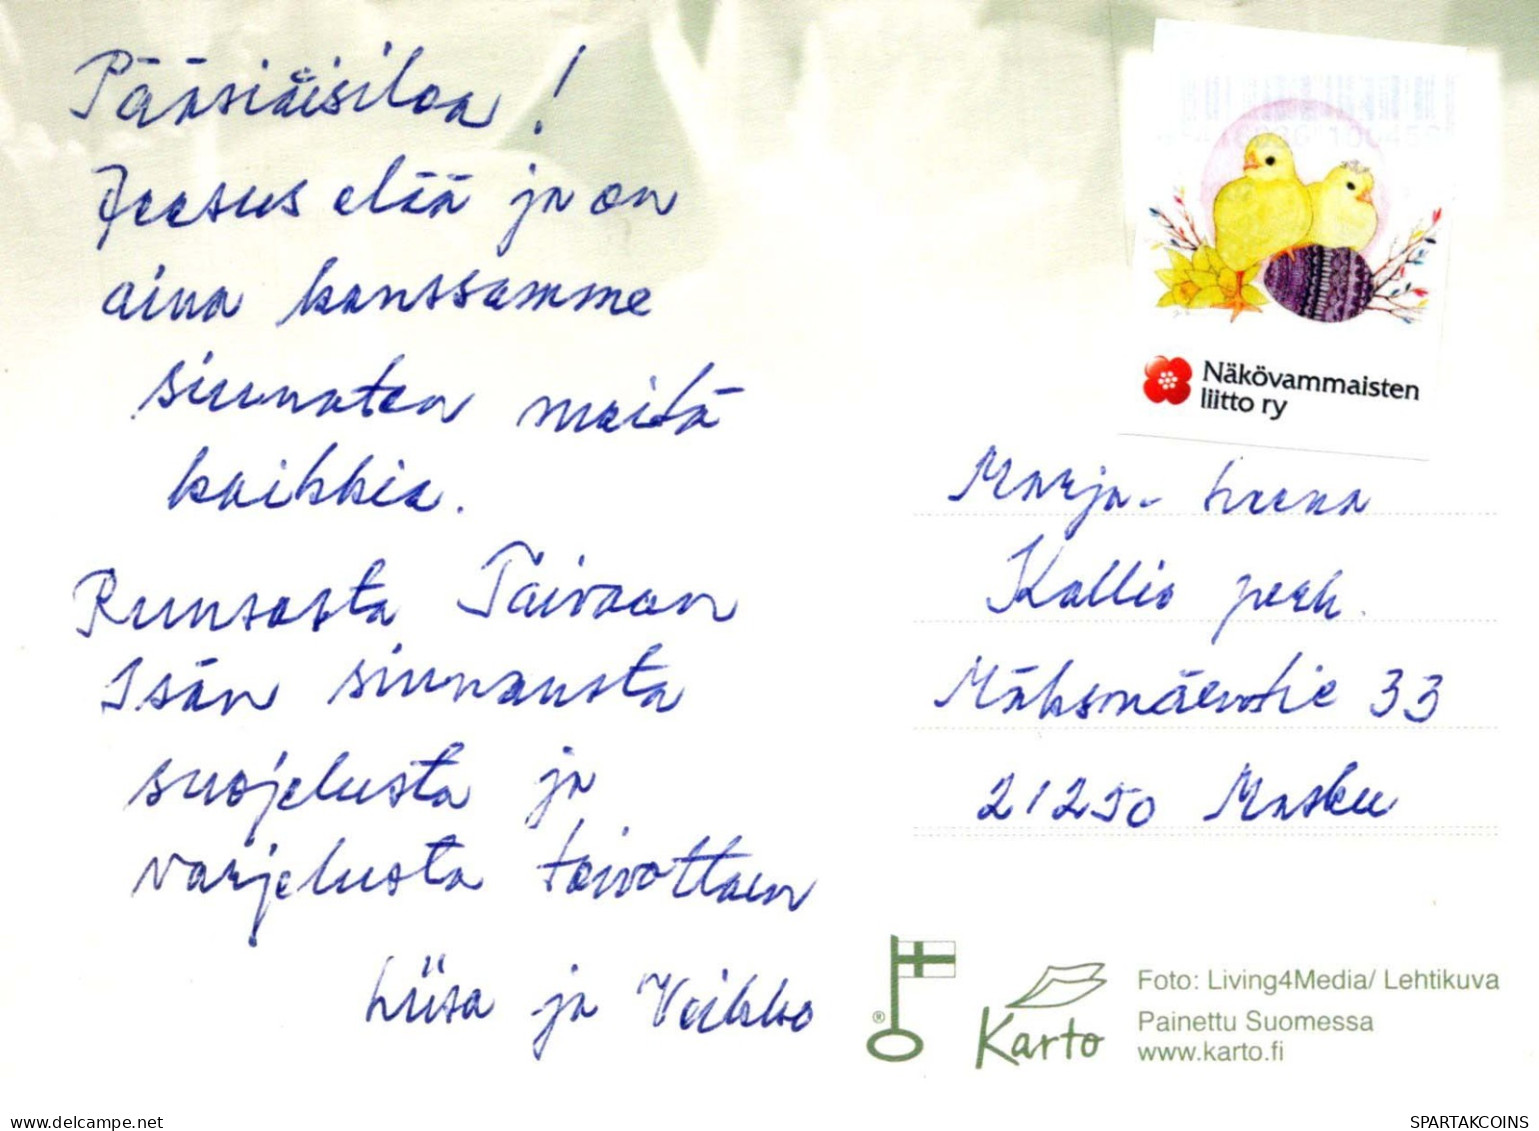 Pääsiäisiloa!
Jeesus elää ja on
aina kanssamme
siunaten meitä
kaikkia.
Runsasta Taivaan
Isän siunausta
suojelusta ja
varjelusta toivottaen
Liisa ja Veikko
Näkövammaisten
liitto ry
Marja-Leena
Kallio perh.
33
21250 Masku
®
Karto
Foto: Living4Media/ Lehtikuva
Painettu Suomessa
www.karto.fi
SPARTAKCOINS